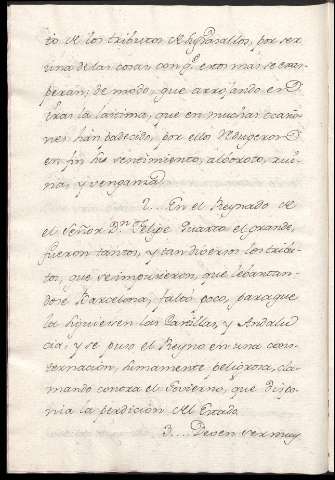 so de los tributos de
una de las cosas con q.e estos mas se exas-
peran; de modo, que arrojando en
la lastima, que en muchas ocasio
nes han padecido, por ello
en fin sentimiento, alboroto, rui
na, y venganza.
2.... En el Reynado de
el Señor D.n Felipe Quarto el grande,
fueron tantos, y tan diversos los tribu-
tos, que se impusieron, que lebantan-
dose Barcelona, faltò poco, para que
la siguiesen las Castillas, y Andalu
cia, y se puso el Reyno en una cons-
ternacion, sumamente peligrosa, cla-
mando contra el Govierno, que dispo-
nia la perdicion del Estado.
3.... Deven ser muy